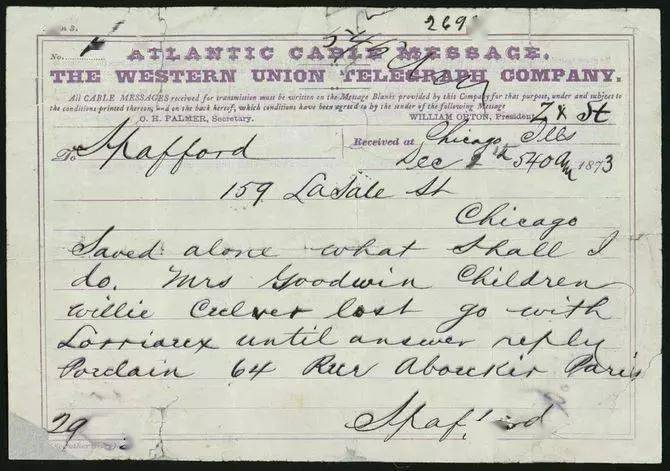 269
No. 1
ATLANTIC CABLE MESSAGE.
THE WESTERN UNION TELEGRAPH COMPANY.
All CABLE MESSAGES received for transmission must be written on the Message Blanks provided by this Company for that purpose, under and subject to
the conditions printed thereon, and on the back hereof, which conditions have been agreed to by the sender of the following Message
O. H. PALMER, Secretary. WILLIAM ORTON, President.
To Spafford
Received at Chicago Ills
Dec 540 am 1873
159 LaSale St
Chicago
Saved alone what shall I
do. Mrs Goodwin Children
Willie Culver lost go with
Lorriaux until answer reply
Porclain 64 Rue Aboukir Paris
Spafford
29